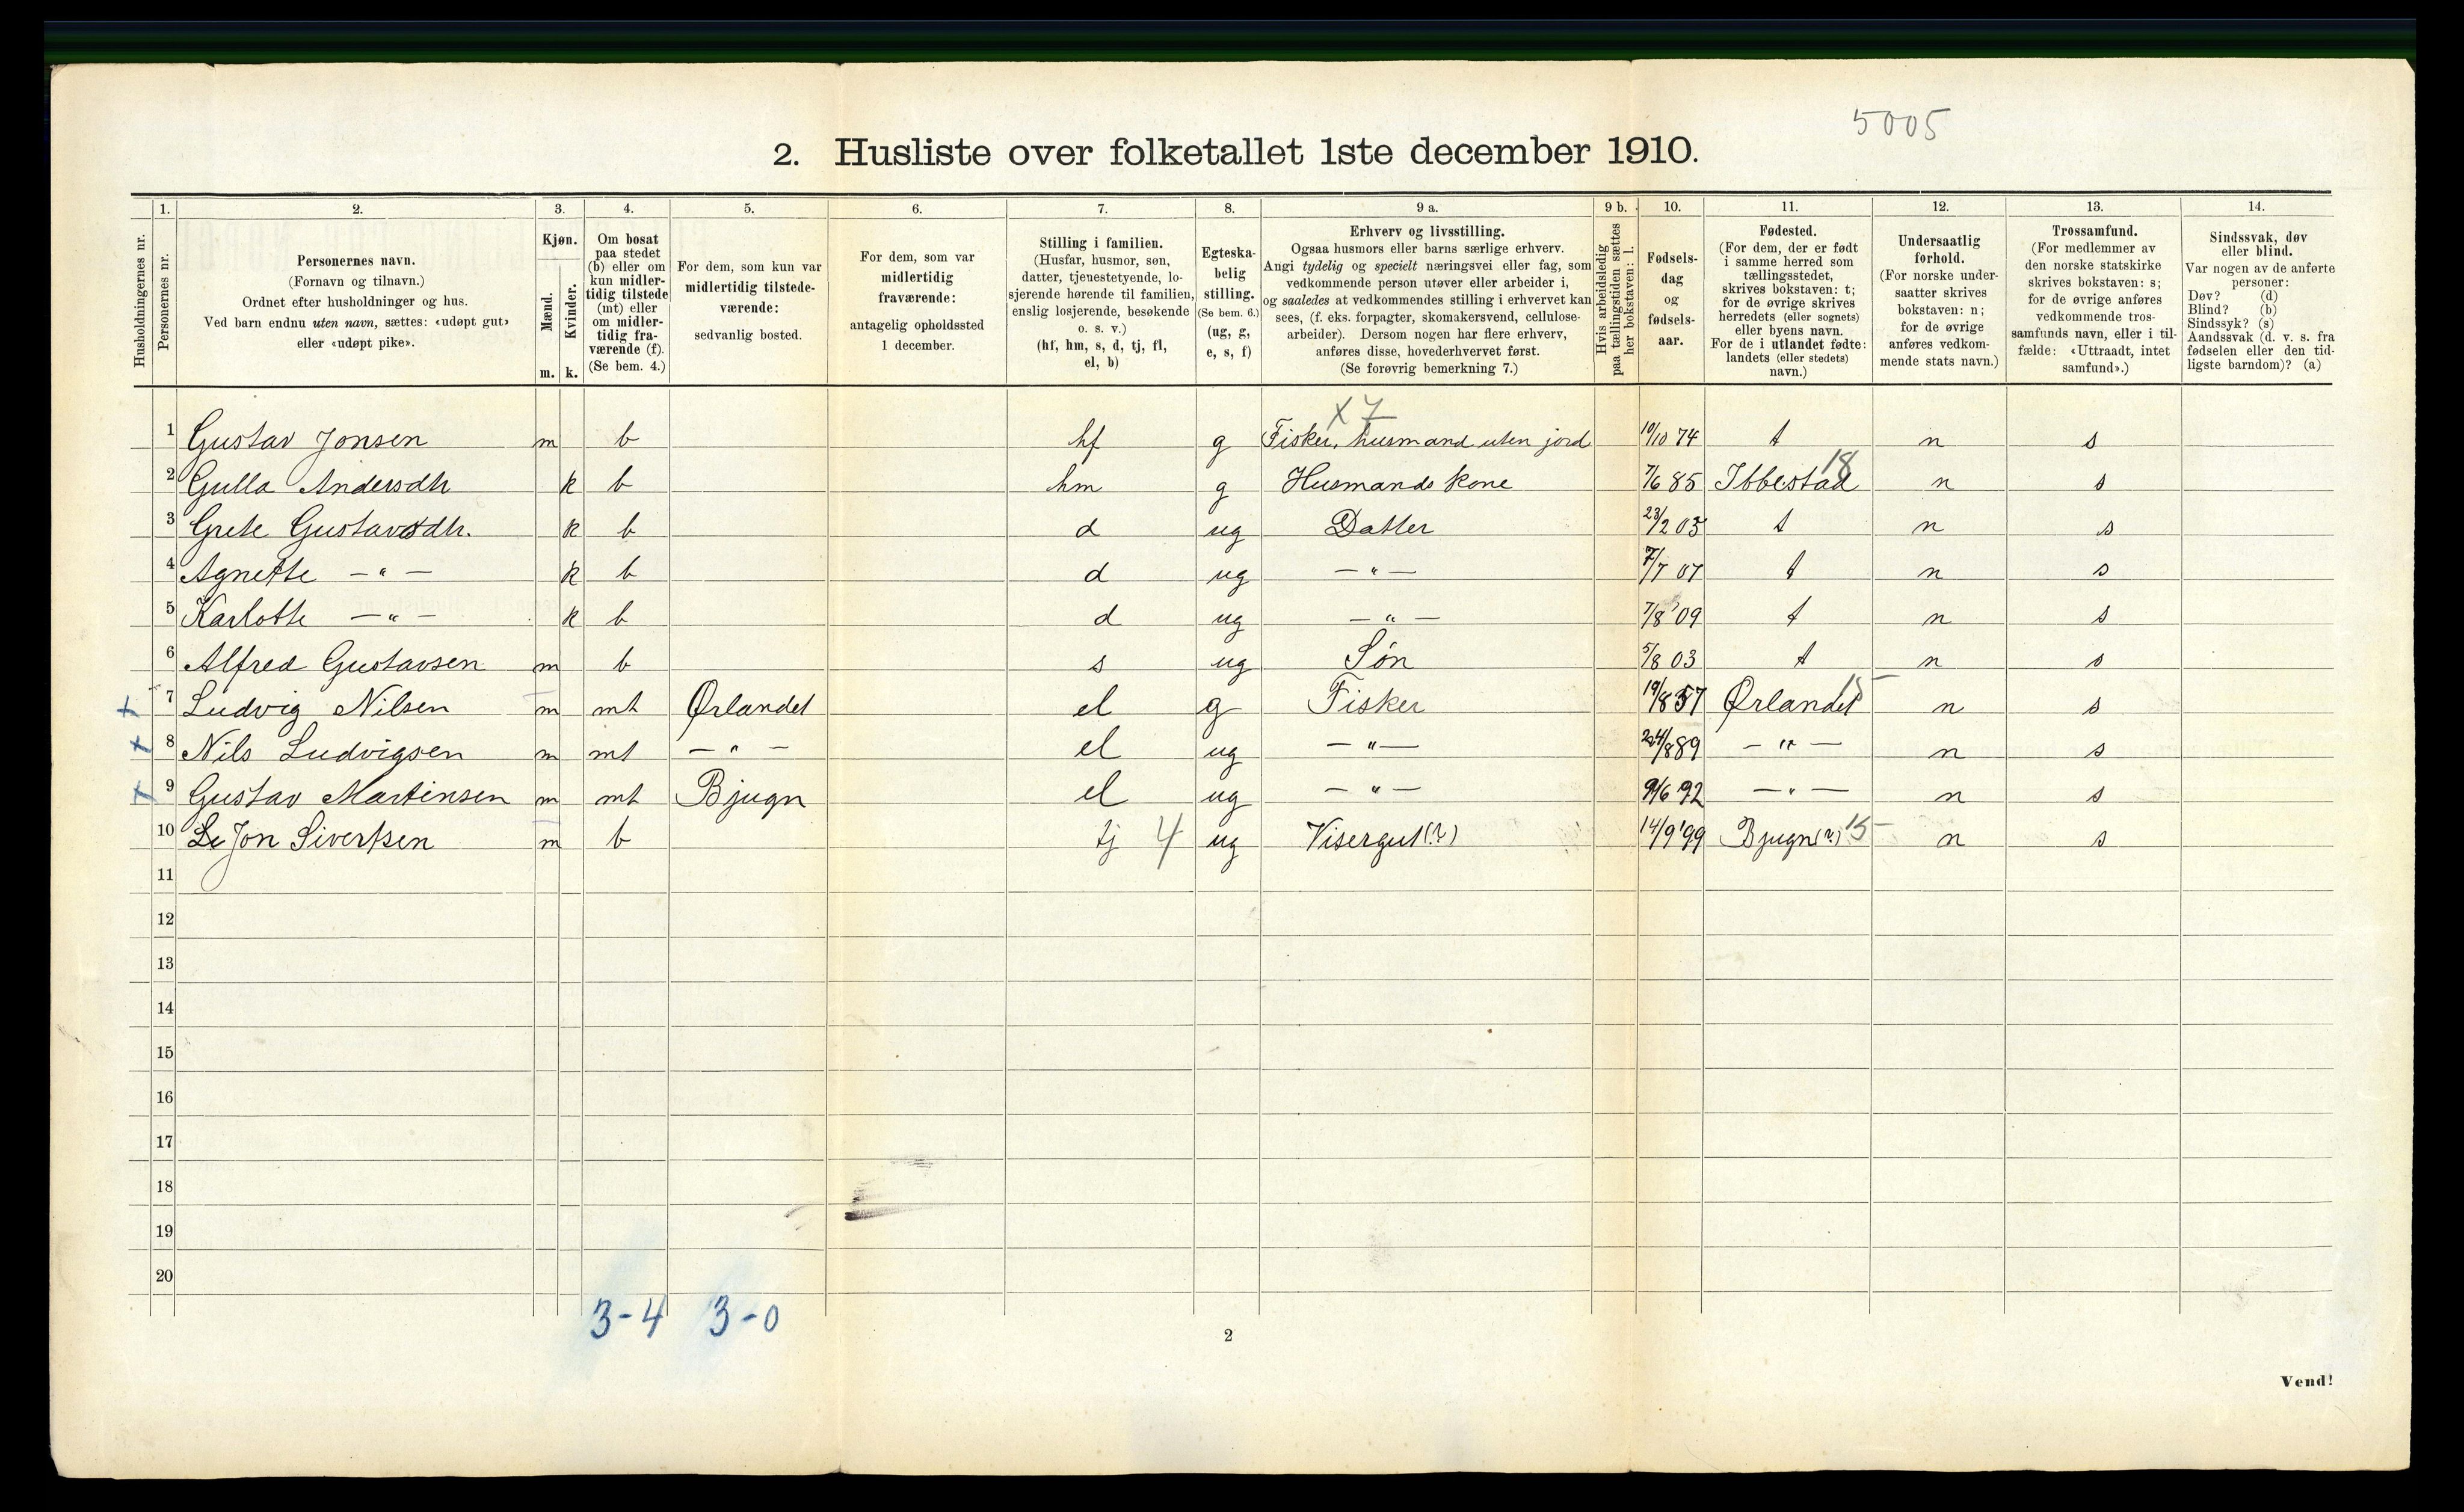 5005
2. Husliste over folketallet 1ste december 1910.
1. 2. 3. 4. 5. 6. 7. 8. 9 a. 9 b. 10. 11. 12. 13. 14.
Husholdningernes nr.
Personernes nr.
Personernes navn.
(Fornavn og tilnavn.)
Ordnet efter husholdninger og hus.
Ved barn endnu uten navn, sættes: «udøpt gut»
eller «udøpt pike».
Kjøn.
Mænd.
Kvinder.
m. k.
Om bosat
paa stedet
(b) eller om
kun midler-
tidig tilstede
(mt) eller
om midler-
tidig fra-
værende (f).
(Se bem. 4.)
For dem, som kun var
midlertidig tilstede-
værende:
sedvanlig bosted.
For dem, som var
midlertidig
fraværende:
antagelig opholdssted
1 december.
Stilling i familien.
(Husfar, husmor, søn,
datter, tjenestetyende, lo-
sjerende hørende til familien,
enslig losjerende, besøkende
o. s. v.)
(hf, hm, s, d, tj, fl,
el, b)
Egteska-
belig
stilling.
(Se bem. 6.)
(ug, g,
e, s, f)
Erhverv og livsstilling.
Ogsaa husmors eller barns særlige erhverv.
Angi tydelig og specielt næringsvei eller fag, som
vedkommende person utøver eller arbeider i,
og saaledes at vedkommendes stilling i erhvervet kan
sees, (f. eks. forpagter, skomakersvend, cellulose-
arbeider). Dersom nogen har flere erhverv,
anføres disse, hovederhvervet først.
(Se forøvrig bemerkning 7.)
Hvis arbeidsledig
paa tællingstiden sættes
her bokstaven: l.
Fødsels-
dag
og
fødsels-
aar.
Fødested.
(For dem, der er født
i samme herred som
tællingsstedet,
skrives bokstaven: t;
for de øvrige skrives
herredets (eller sognets)
eller byens navn.
For de i utlandet fødte:
landets (eller stedets)
navn.)
Undersaatlig
forhold.
(For norske under-
saatter skrives
bokstaven: n;
for de øvrige
anføres vedkom-
mende stats navn.)
Trossamfund.
(For medlemmer av
den norske statskirke
skrives bokstaven: s;
for de øvrige anføres
vedkommende tros-
samfunds navn, eller i til-
fælde: «Uttraadt, intet
samfund».)
Sindssvak, døv
eller blind.
Var nogen av de anførte
personer:
Døv? (d)
Blind? (b)
Sindssyk? (s)
Aandssvak (d. v. s. fra
fødselen eller den tid-
ligste barndom)? (a)
x 7
1 Gustav Jonsen m b hf g Fisker, husmand uten jord 10/10 74 t n s
18
2 Gulla Andersdtr k b hm g Husmands kone 7/6 85 Ibbestad n s
3 Grete Gustavsdtr. k b d ug Datter 23/2 05 t n s
4 Agnette —"— k b d ug —"— 7/7 07 t n s
5 Karlotte —"— k b d ug —"— 7/8 09 t n s
6 Alfred Gustavsen m b s ug Søn 5/8 03 t n s
15
x 7 Ludvig Nilsen m mt Ørlandet el g Fisker 19/8 57 Ørlandet n s
x 8 Nils Ludvigsen m mt —"— el ug —"— 24/8 89 —"— n s
x 9 Gustav Martinsen m mt Bjugn el ug —"— 9/6 92 —"— n s
10 Jon Sivertsen m b tj 4 ug Visergut(?) 14/9 '99 Bjugn(?) 15 n s
11
12
13
14
15
16
17
18
19
20
3-4 3-0
2
Vend!